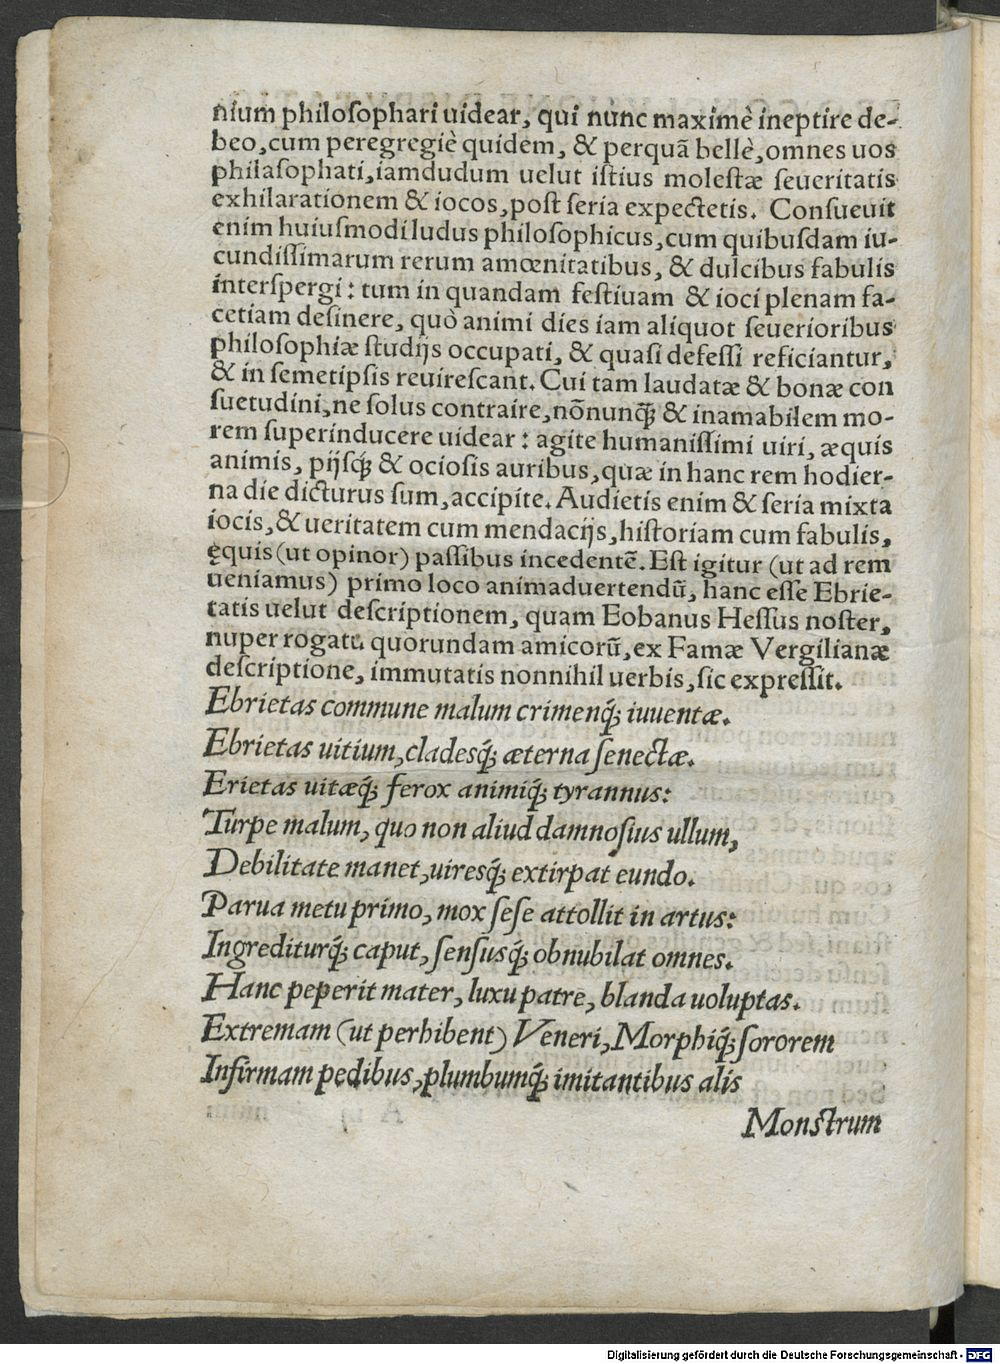 nium philoſophari uidear, qui nunc maximè ineptire de-
beo, cum peregregiè quidem, & perquã bellè, omnes uos
philaſophati, iamdudum uelut iſtius moleſtæ ſeueritatis
exhilarationem & iocos, poſt ſeria expectetis. Conſueuit
enim huiuſmodi ludus philoſophicus, cum quibuſdam iu-
cundiſſimarum rerum amœnitatibus, & dulcibus fabulis
interſpergi: tum in quandam feſtiuam & ioci plenam fa-
cetiam deſinere, quò animi dies iam aliquot ſeuerioribus
philoſophiæ ſtudijs occupati, & quaſi defeſſi reficiantur,
& in ſemetipſis reuireſcant. Cui tam laudatæ & bonæ con
ſuetudini, ne ſolus contraire, nõnunq̃ & inamabilem mo-
rem ſuperinducere uidear: agite humaniſſimi uiri, æquis
animis, pijſq́; & ocioſis auribus, quæ in hanc rem hodier-
na die dicturus ſum, accipite. Audietis enim & ſeria mixta
iocis, & ueritatem cum mendacijs, hiſtoriam cum fabulis,
ęquis (ut opinor) paſſibus incedentẽ. Eſt igitur (ut ad rem
ueniamus) primo loco animaduertendũ, hanc eſſe Ebrie-
tatis uelut deſcriptionem, quam Eobanus Heſſus noſter,
nuper rogatu quorundam amicorũ, ex Famæ Vergilianæ
deſcriptione, immutatis nonnihil uerbis, ſic expreſſit.
Ebrietas commune malum crimenq́; iuuentæ.
Ebrietas uitium, cladesq́; æterna ſenectæ.
Erietas uitæq́; ferox animiq́; tyrannus:
Turpe malum, quo non aliud damnoſius ullum,
Debilitate manet, uiresq́; extirpat eundo.
Parua metu primo, mox ſeſe attollit in artus:
Ingrediturq́; caput, ſenſusq́; obnubilat omnes.
Hanc peperit mater, luxu patre, blanda uoluptas.
Extremam (ut perhibent) Veneri, Morphiq́; ſororem
Infirmam pedibus, plumbumq́; imitantibus alis
Monſtrum
Digitalisierung gefördert durch die Deutsche Forschungsgemeinschaft - DFG